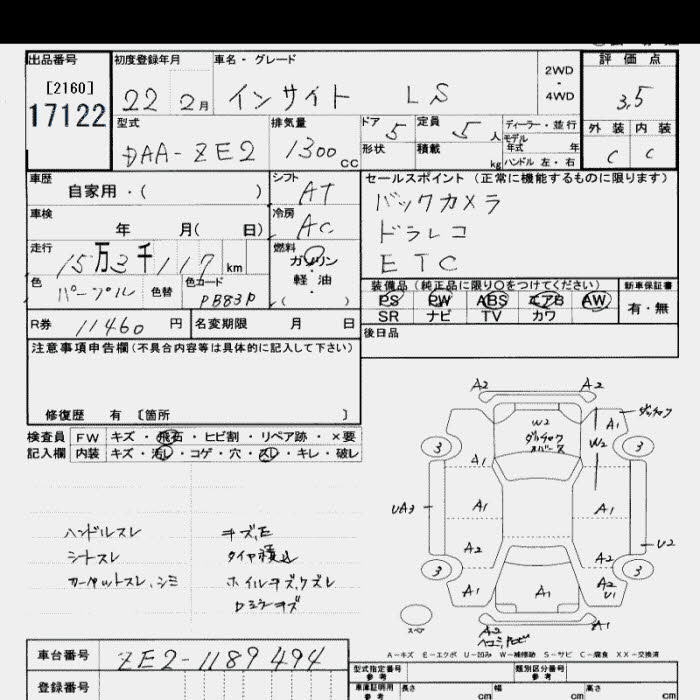 出品番号 初度登録年月 車名・グレード 評価点
[2160]
17122
22 2月 インサイト LS 2WD・4WD 3.5
型式 排気量 ドア 5 定員 5人 ディーラー・並行 外装 内装
DAA-ZE2 1300cc 形状 積載 kg モデル年式 年 ハンドル 左・右 C C
車歴 自家用・( ) シフト AT セールスポイント (正常に機能するものに限ります)
車検 年 月( 日) 冷房 AC バックカメラ
ドラレコ
ETC
走行 15万3千117km 燃料 ガソリン・軽油・( )
色 パープル 色替 色コード PB83P
装備品 (純正品に限り○をつけてください) 新車保証書
PS PW ABS エアB AW 有・無
SR ナビ TV カワ
R券 11460円 名変期限 月 日 後日品
注意事項申告欄 (不具合内容等は具体的に記入して下さい)
修復歴 有 〔箇所 〕
検査員 FW キズ・飛石・ヒビ割・リペア跡・×要
記入欄 内装 キズ・汚レ・コゲ・穴・スレ・キレ・破レ
ハンドルスレ キズ,E
シートスレ タイヤ積込
カーペットスレ,シミ ホイルキズ,ケズレ
ロミラーキズ
A2 A2
W2 A1
3 A1 W2 3
UA3 A1 A1 U2
A2 A2
3 A1 A1 A2 U1 3
スペア A2 A1
A-キズ E-エクボ U-凹み W-補修跡 S-サビ C-腐食 XX-交換済
車台番号 ZE2-1189494
登録番号
型式指定番号 参考 類別区分番号 参考
車庫証明用 参考 長さ cm 幅 cm 高さ cm